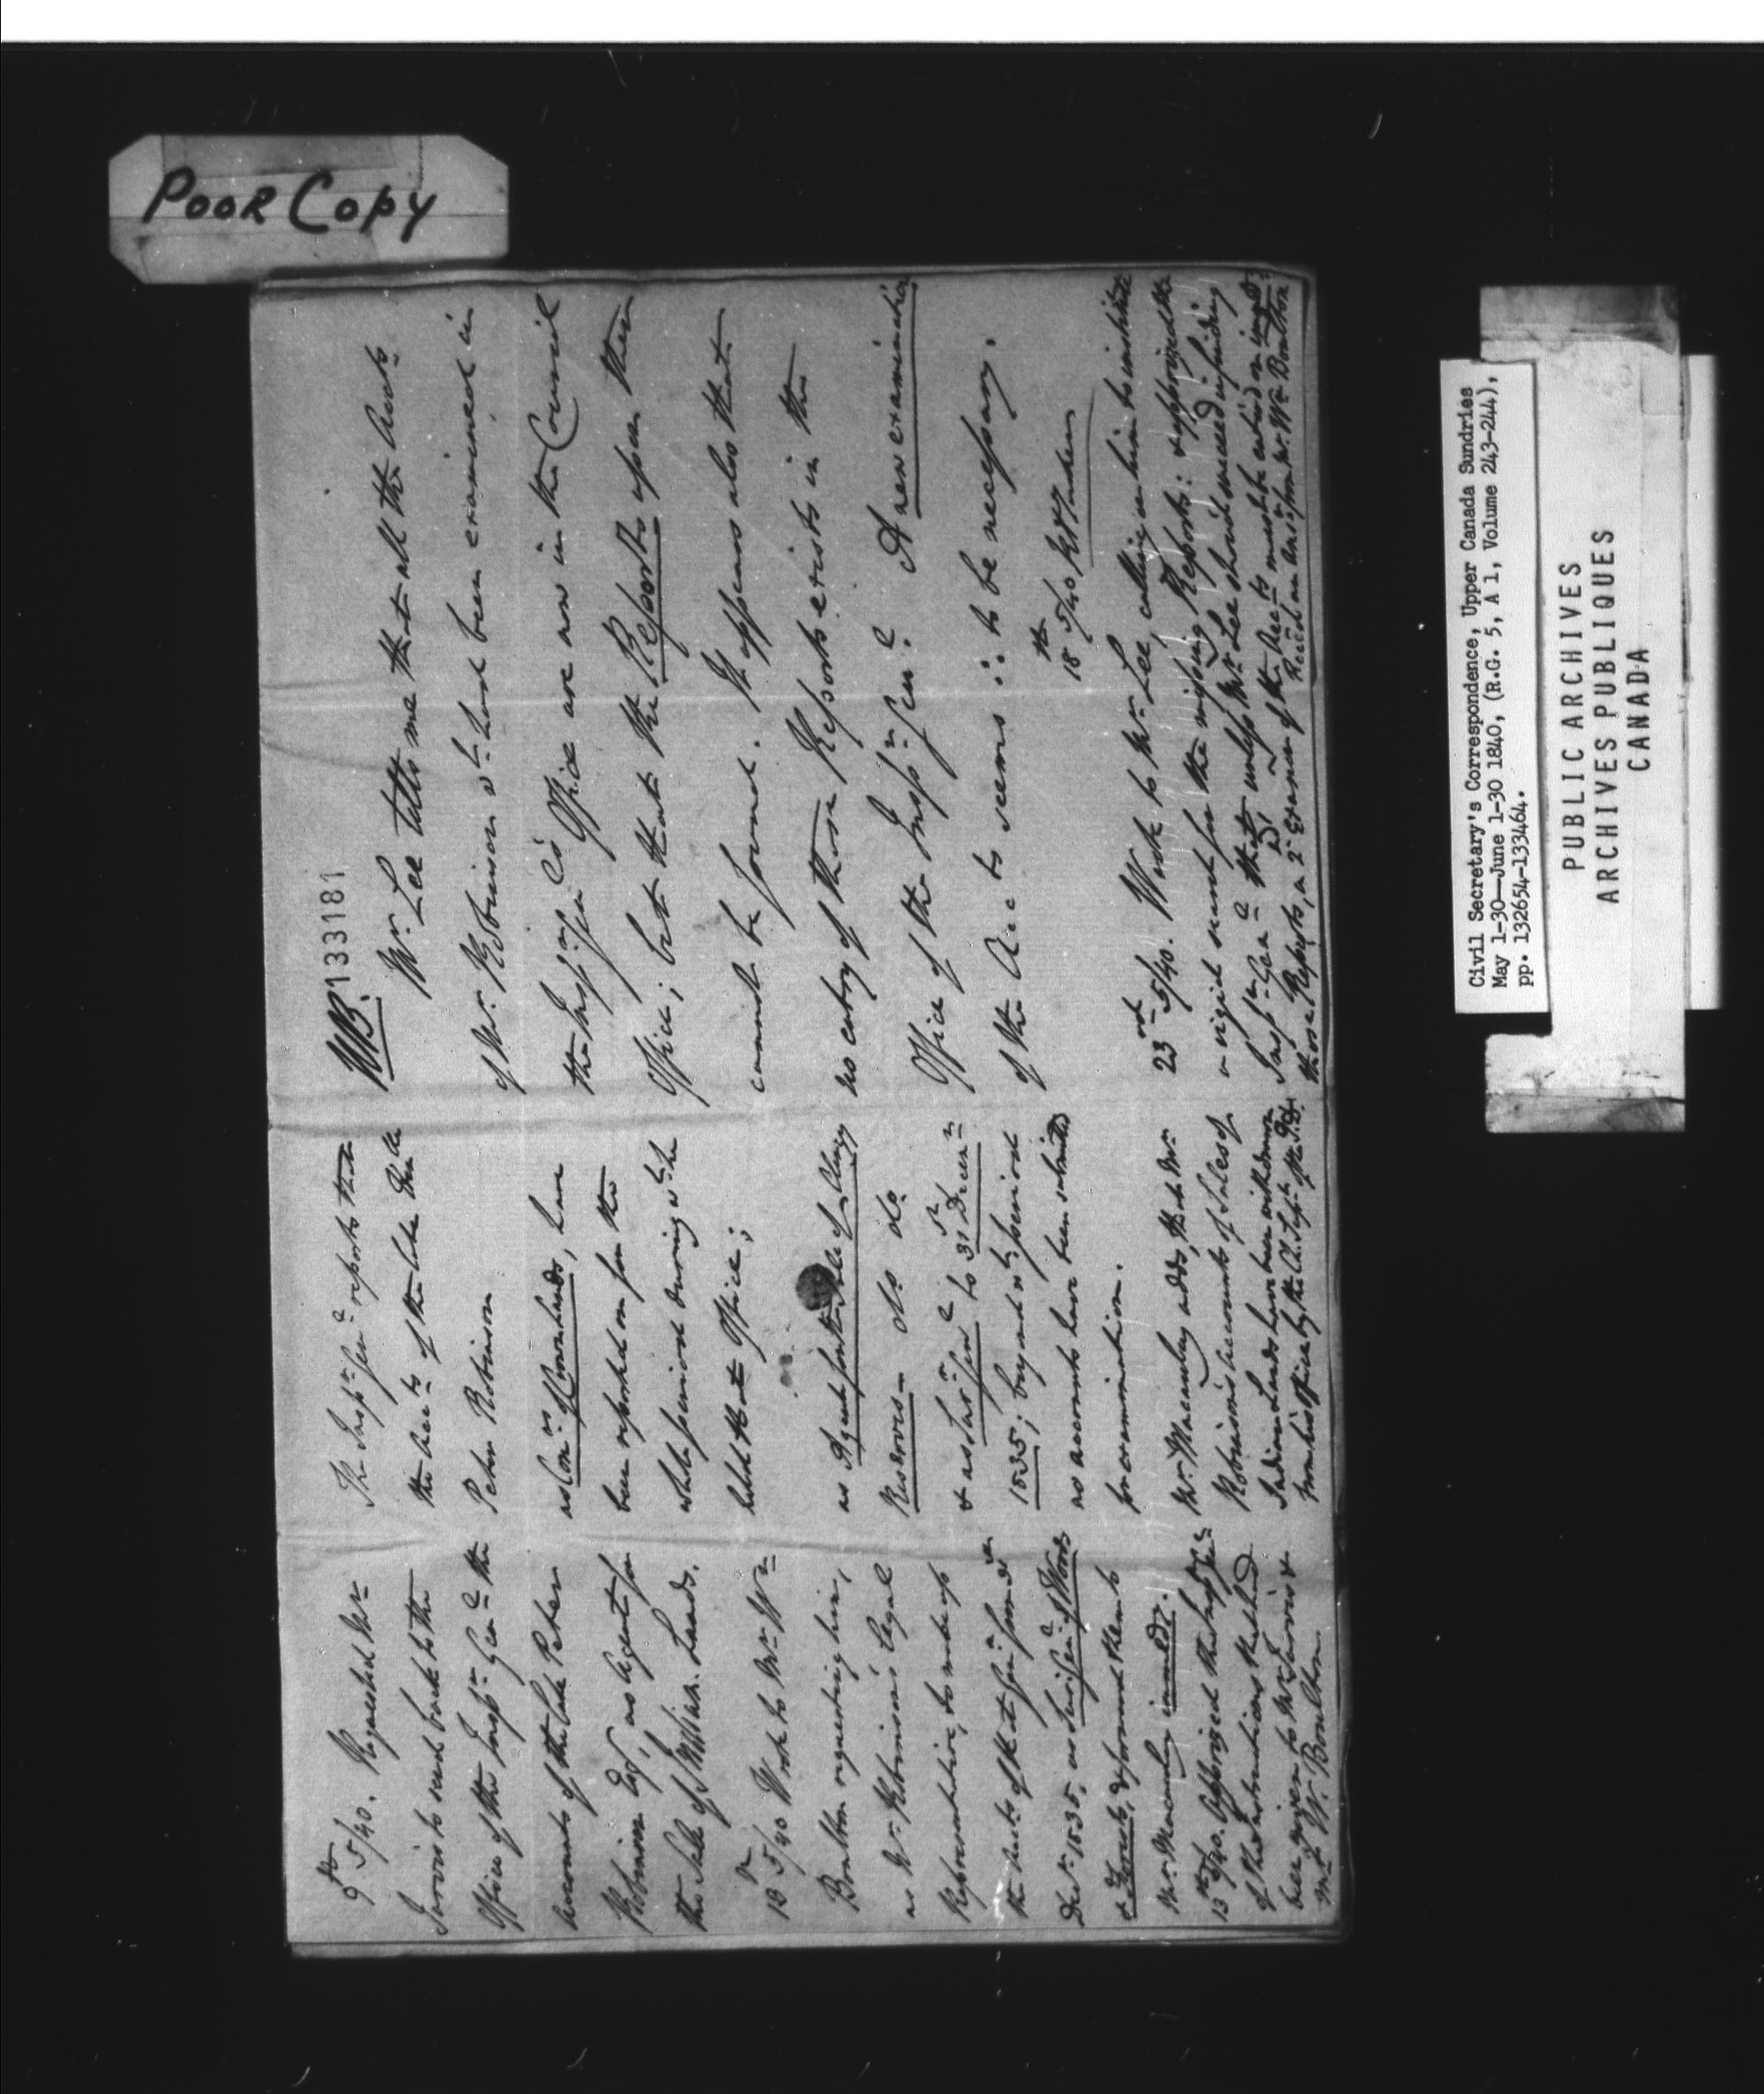 POOR COPY
9th 5/40. Requested Mr.
Jarvis to send back to the
Office of the Inspr. Genl. the
accounts of the late Peter
Robinson Esq, as Agent for
the Sale of Indian Lands.
5/40 Wrote to Mr. Wm.
Boulton requesting him,
as Mr. Robinson's legal
Representative, to make up
the Accts. of that Gen
Decr. 1835, as Survr. Genl. of Woods
& Forests, & forward them to
Mr. Macaulay immedy.
13th 5/40. Apprized the Inspr. Genl.
of the instructions that had
been given to Mr. Jarvis &
Mr. W. Boulton
The Inspr. Genl. reports that
the Accts. of the late Honble
Peter Robinson
as Comr. of Crown Lands, have
been reported on for the
whole period during wh. he
held that Office;
as Agent for the Sale of Clergy
Reserves — do. do.
& as Surr. Genl. to 31st Decem
1835; beyond wh. period
no accounts have been submitted
for examination.
Mr. Macaulay adds, that Mr.
Robinson's accounts of Sales of
Indian Lands have been withdrawn
from his Office by the Ch. Supt. of the I.D.
NB. 133181
Mr. Lee tells me that all the Accts.
of Mr. Robinson wh. had been examined in
the Inspr. Genl's Office are now in the Council
Office; but that the Reports upon them
cannot be found. It appears also that
no entry of these Reports exists in the
Office of the Inspr. Genl. A new examination
of the Accts seems ∴ to be necessary.
18th 5/40
23rd 5/40. Wrote to Mr. Lee, calling on him to institute
a rigid search for the missing Reports: & apprized the
Inspr. Genl. that unless Mr. Lee should succeed in finding
those Reports, a 2d. Examn. of the Accts must be entered on immedy.
Recd. an Ansr. from Mr. Wm. Boulton
Civil Secretary's Correspondence, Upper Canada Sundries
May 1-30—June 1-30 1840, (R.G. 5, A 1, Volume 243-244),
pp. 132654-133464.
PUBLIC ARCHIVES
ARCHIVES PUBLIQUES
CANADA